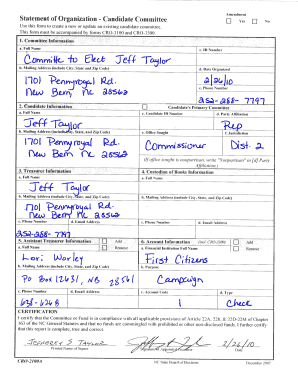 Amendment
Statement of Organization - Candidate Committee
Yes No
Use this form to create a new or update an existing candidate committee.
This form must be accompanied by forms CRO-3100 and CRO-3500.
1. Committee Information
a. Full Name
c. ID Number
Committee to Elect Jeff Taylor
b. Mailing Address (include City, State, and Zip Code)
d. Date Organized
1701 Pennyroyal Rd.
New Bern NC 28562
2/26/10
e. Phone Number
252-288-7797
2. Candidate Information
Candidate's Primary Committee
a. Full Name
c. Candidate ID Number
d. Party Affiliation
Jeff Taylor
Rep
b. Mailing Address (include City, State, and Zip Code)
e. Office Sought
f. Jurisdiction
1701 Pennyroyal Rd.
New Bern NC 28562
Commissioner
Dist. 2
If office sought is nonpartisan, write "Nonpartisan" in [d] Party
Affiliation.
3. Treasurer Information
4. Custodian of Books Information
a. Full Name
a. Full Name
Jeff Taylor
b. Mailing Address (include City, State, and Zip Code)
b. Mailing Address (include City, State, and Zip Code)
1701 Pennyroyal Rd.
New Bern NC 28562
c. Phone Number
d. Email Address
c. Phone Number
d. Email Address
252-288-7797
5. Assistant Treasurer Information
Add
Remove
6. Account Information
(incl. CRO-3500)
Add
Remove
a. Full Name
a. Financial Institution Full Name
Lori Worley
First Citizens
b. Mailing Address (include City, State, and Zip Code)
b. Purpose
PO Box 12631, NB 28561
Campaign
c. Phone Number
d. Email Address
c. Account Code
d. Type
638-6268
1
Check
CERTIFICATION
I certify that the Committee or Fund is in compliance with all applicable provisions of Article 22A, 22B, & 22D-22M of Chapter
163 of the NC General Statutes and that no funds are commingled with prohibited or other non-disclosed funds. I further certify
that this report is complete, true and correct.
Jeffrey S Taylor
2/26/10
Printed Name of Signer
Date
CRO-2100A
NC State Board of Elections
December 2007